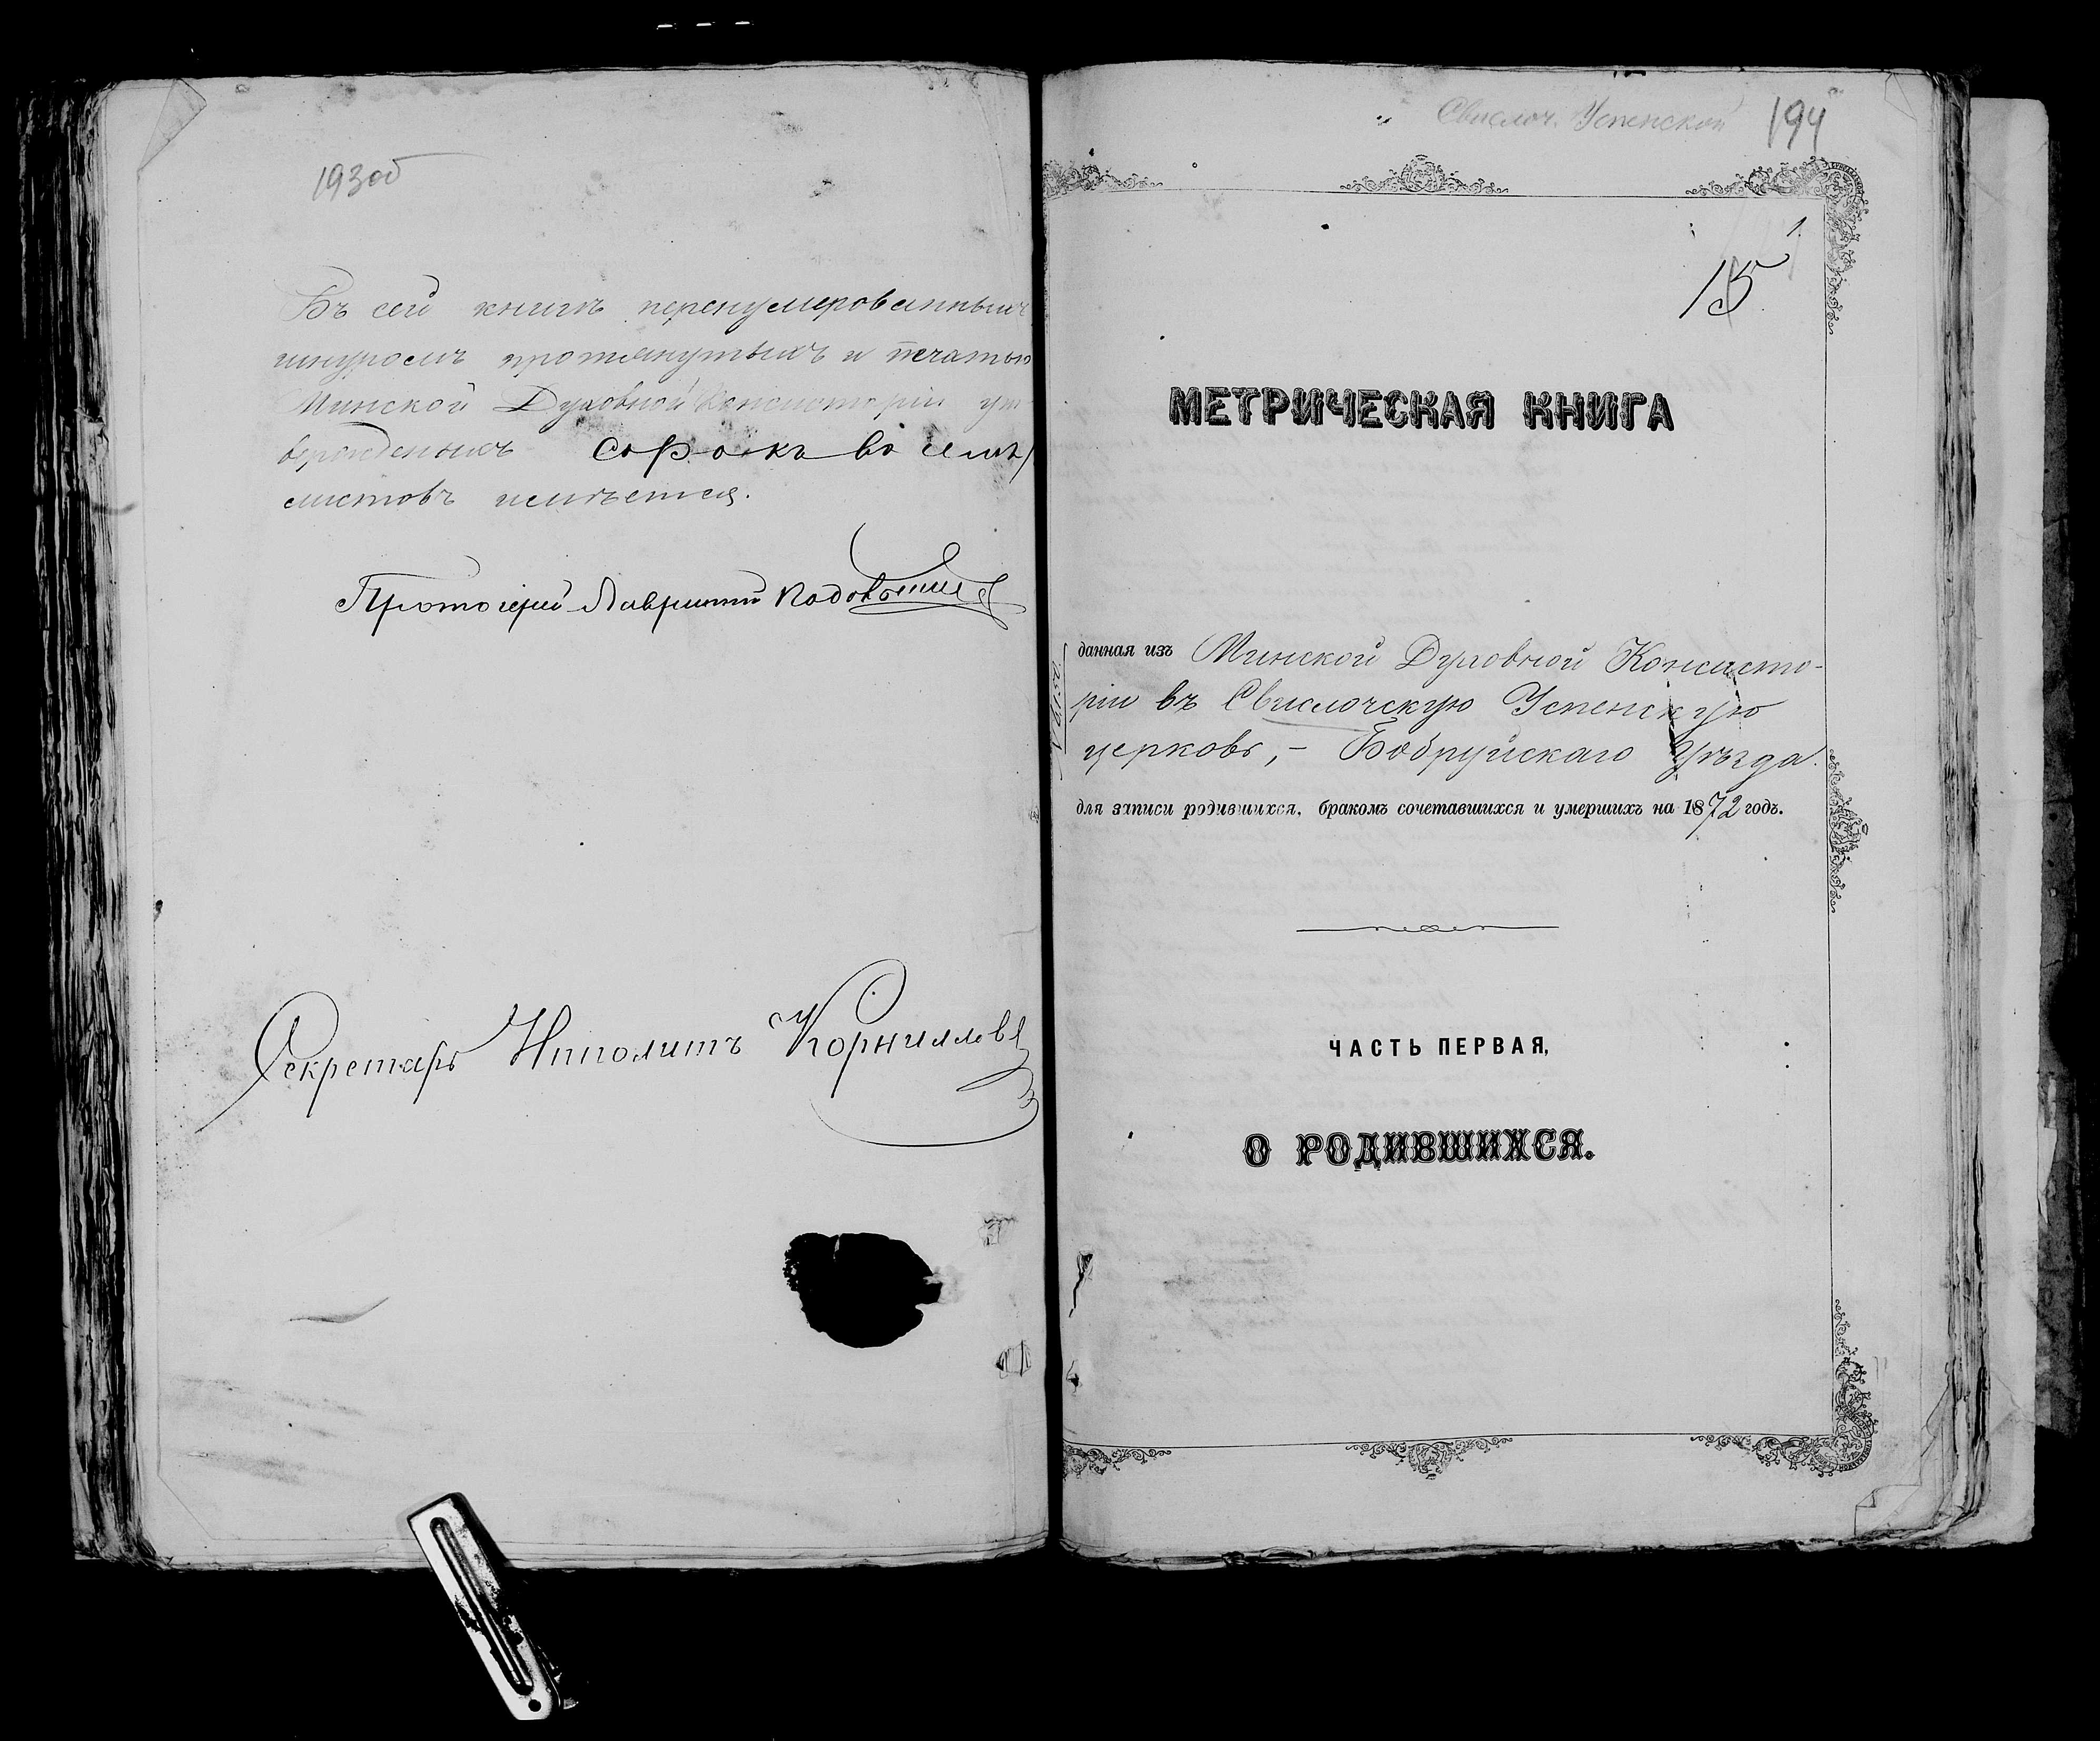 193об
Въ сей книгѣ перенумерованныхъ
шнуромъ протянутыхъ и печатью
Минской Духовной Консисторіи ут-
вержденныхъ сорокъ восемь
листовъ имѣется.
Протоіерей Лаврентій
Секретарь Ипполитъ Корниловъ
Свислоч. Успенской 194
1
15
МЕТРИЧЕСКАЯ КНИГА
данная изъ Минской Духовной Консисто-
ріи въ Свислочскую Успенскую
церковь, – Бобруйскаго Уѣзда.
для записи родившихся, бракомъ сочетавшихся и умершихъ на 1872 годъ.
ЧАСТЬ ПЕРВАЯ,
О РОДИВШИХСЯ.